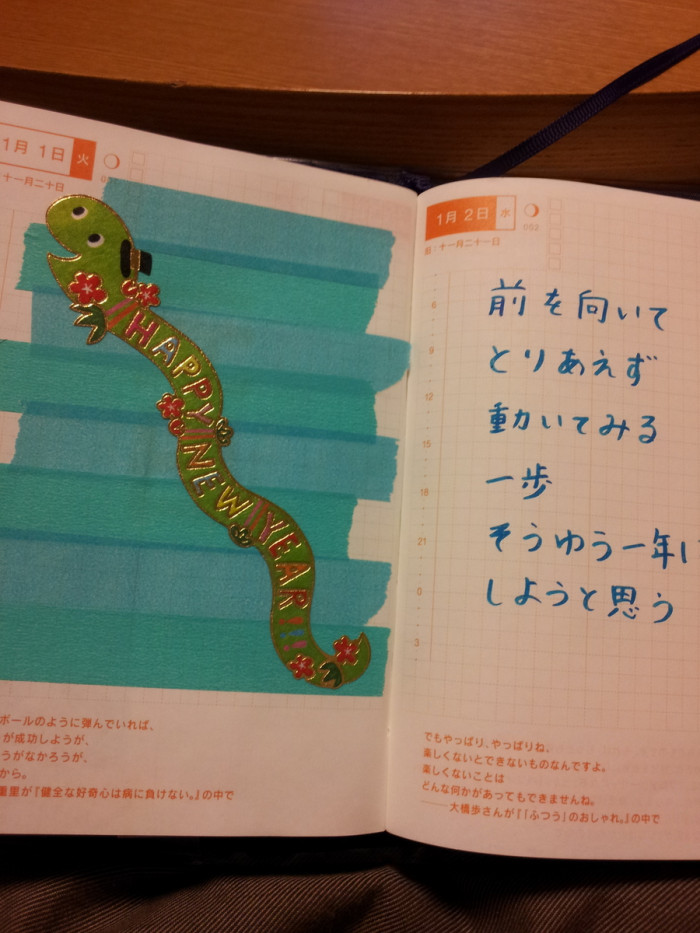 1月 1日 火
十一月二十日
HAPPY NEW YEAR!!!
ボールのように弾んでいれば、
が成功しようが、
うがなかろうが、
から。
重里が『健全な好奇心は病に負けない。』の中で
1月 2日 水
旧:十一月二十一日
002
6
9
12
15
18
21
0
3
前を向いて
とりあえず
動かいてみる
一歩
そうゆう一年に
しようと思う
でもやっぱり、やっぱりね、
楽しくないとできないものなんですよ。
楽しくないことは
どんな何かがあってもできませんね。
——大橋歩さんが『「ふつう」のおしゃれ。』の中で